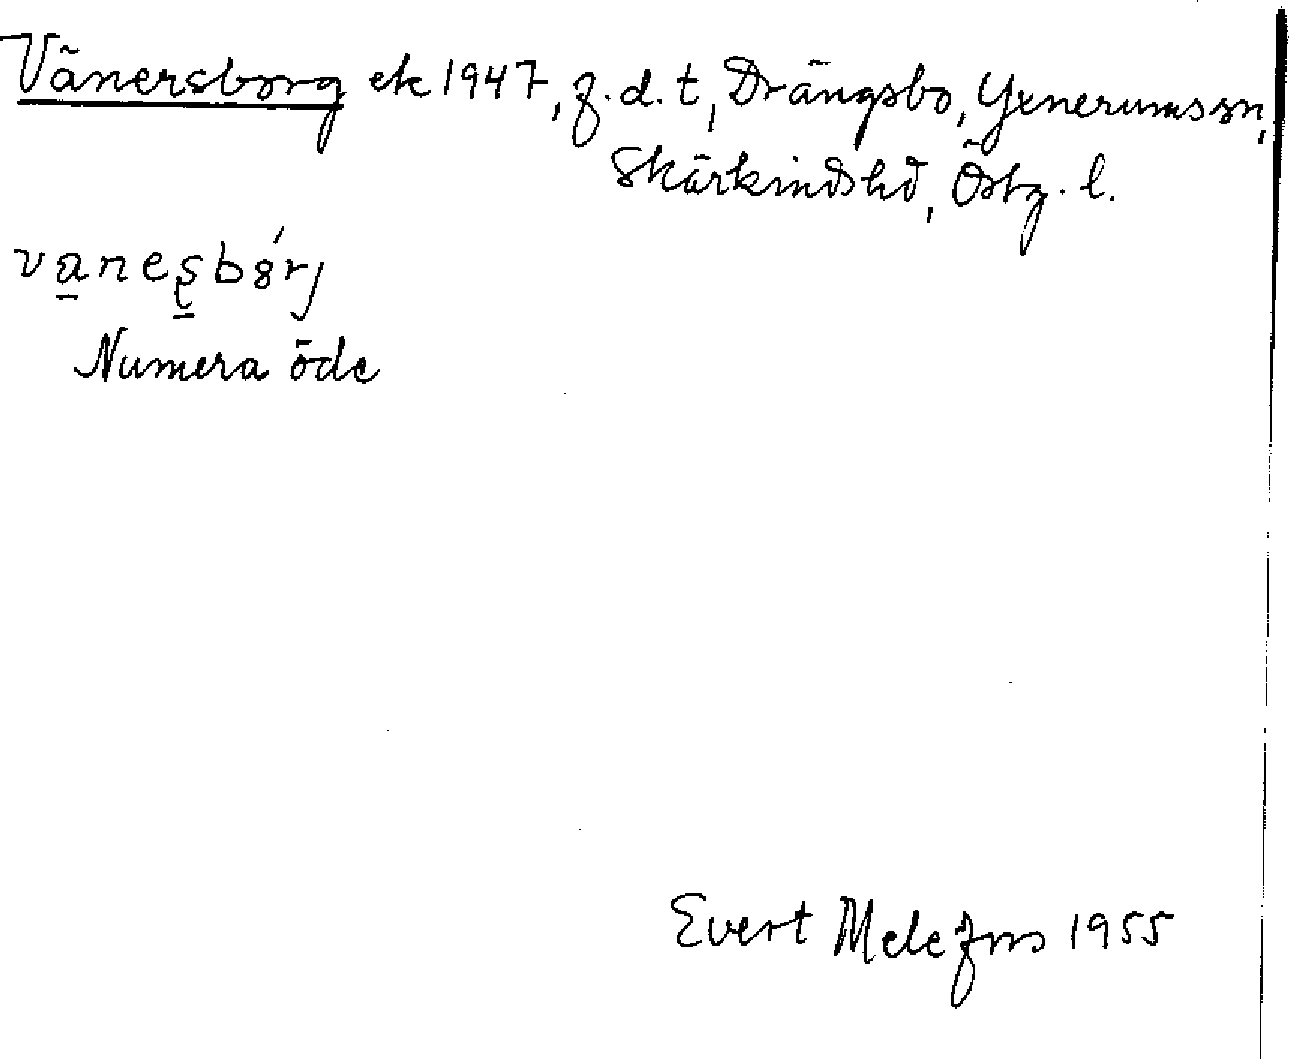 Vänersborg ek 1947, f.d.t, Drängsbo, Yxnerums sn,
Skärkinds hd, Östg. l.
vanesbórj
Numera öde
Evert Melefors 1955